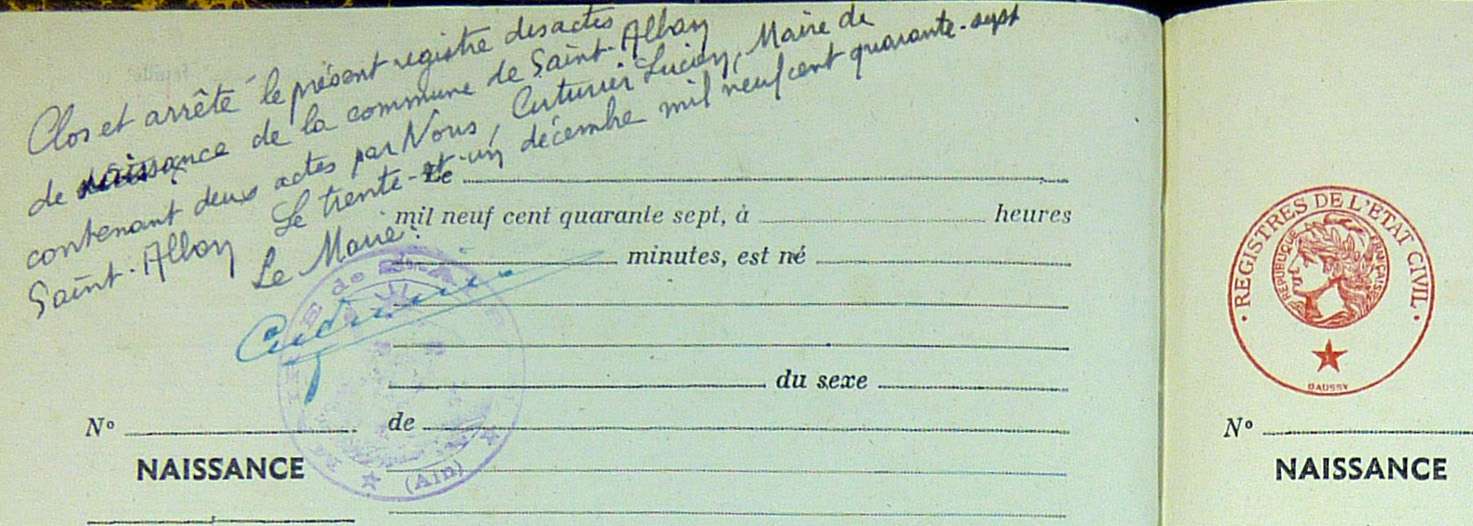 Clos et arrêté le présent registre des actes
de naissance de la commune de Saint-Alban
contenant deux actes par Nous, Cuturier Lucien, Maire de
Saint-Alban Le trente-et-un décembre mil neuf cent quarante-sept
Le Maire:
Le
mil neuf cent quarante sept, à heures
minutes, est né
du sexe
N° de
NAISSANCE
(Ain)
REGISTRES DE L'ETAT CIVIL
REPUBLIQUE FRANÇAISE
DAUSSY
N°
NAISSANCE